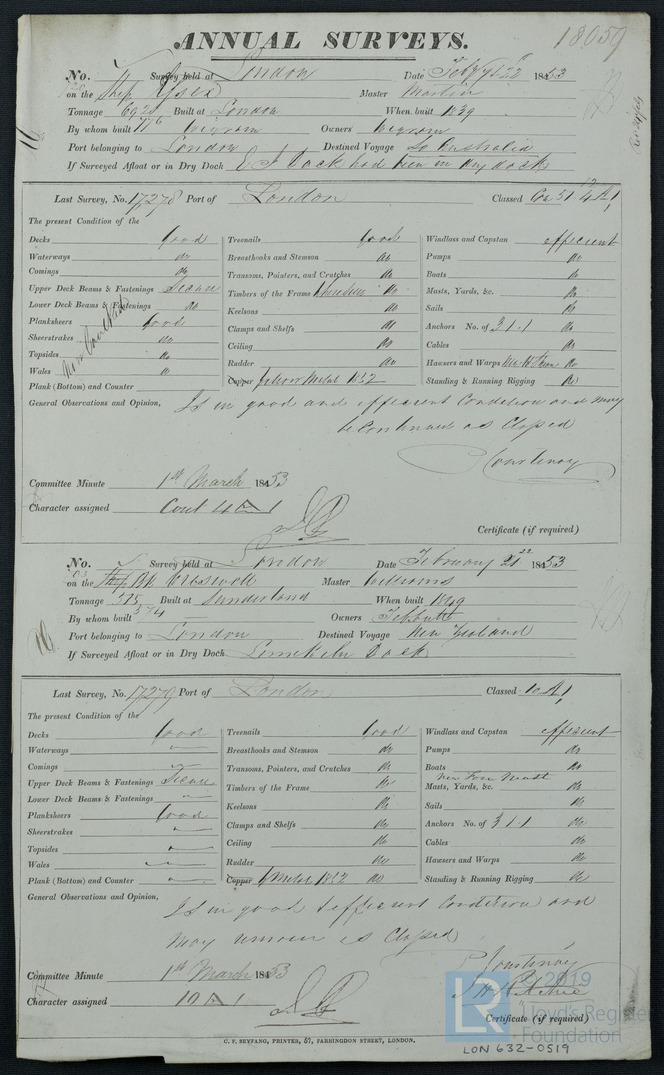 ANNUAL SURVEYS. 18059
No. Survey held at London Date Feby 22 1853
on the Ship Essex Master Martin
Tonnage Built at London When built 1839
By whom built Wigram Owners Wigram
Port belonging to London Destined Voyage So Australia
If Surveyed Afloat or in Dry Dock E I Dock had been in dry dock
Last Survey, No. 17278 Port of London Classed A1
The present Condition of the
Decks Good Treenails Good Windlass and Capstan efficient
Waterways do Breasthooks and Stemson do Pumps do
Comings do Transoms, Pointers, and Crutches do Boats do
Upper Deck Beams & Fastenings Secure Timbers of the Frame do Masts, Yards, &c. do
Lower Deck Beams & Fastenings do Keelsons do Sails do
Planksheers Good Clamps and Shelfs do Anchors No. of 3.1.1 do
Sheerstrakes do Ceiling do Cables do
Topsides do Rudder do Hawsers and Warps do
Wales do Copper Yellow Metal 1852 Standing & Running Rigging do
Plank (Bottom) and Counter
General Observations and Opinion, Is in good and efficient Condition and may
be Continued as Classed
Courtenay
Committee Minute 1st March 1853
Character assigned Cont A 1
Certificate (if required)
No. Survey held at London Date February 22 1853
on the Cresswell Master Williams
Tonnage 575 Built at Sunderland When built 1849
574
By whom built Owners Tebbutt
Port belonging to London Destined Voyage New Zealand
If Surveyed Afloat or in Dry Dock Limekiln Dock
Last Survey, No. 17279 Port of London Classed 10 A1
The present Condition of the
Decks Good Treenails Good Windlass and Capstan efficient
Waterways Breasthooks and Stemson do Pumps do
Comings Transoms, Pointers, and Crutches do Boats do
Upper Deck Beams & Fastenings Secure Timbers of the Frame do New Fore Mast Masts, Yards, &c. do
Lower Deck Beams & Fastenings Keelsons do Sails do
Planksheers Good Clamps and Shelfs do Anchors No. of 3.1.1 do
Sheerstrakes Ceiling do Cables do
Topsides Rudder do Hawsers and Warps do
Wales Copper Y Metal 1852 do Standing & Running Rigging do
Plank (Bottom) and Counter
General Observations and Opinion, Is in good & efficient Condition and
may remain as Classed
Courtenay
Committee Minute 1st March 1853
J H Ritchie
Character assigned 10 A 1
Certificate (if required)
C. F. SEYFANG, PRINTER, 57, FARRINGDON STREET, LONDON.
LR © 2019
Lloyd's Register
Foundation
LON 632-0519